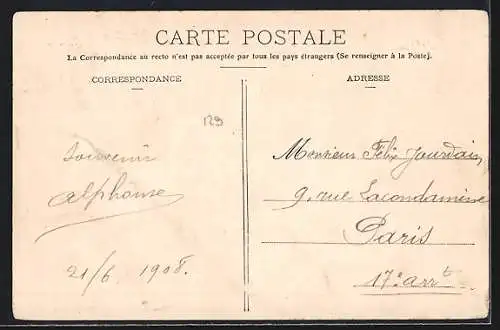 CARTE POSTALE
La Correspondance au recto n'est pas acceptée par tous les pays étrangers (Se renseigner à la Poste).
CORRESPONDANCE
ADRESSE
129
Souvenir
Alphonse
21/6 1908.
Monsieur Félix Jourdain
9, rue Lacondamine
Paris
17e arrt